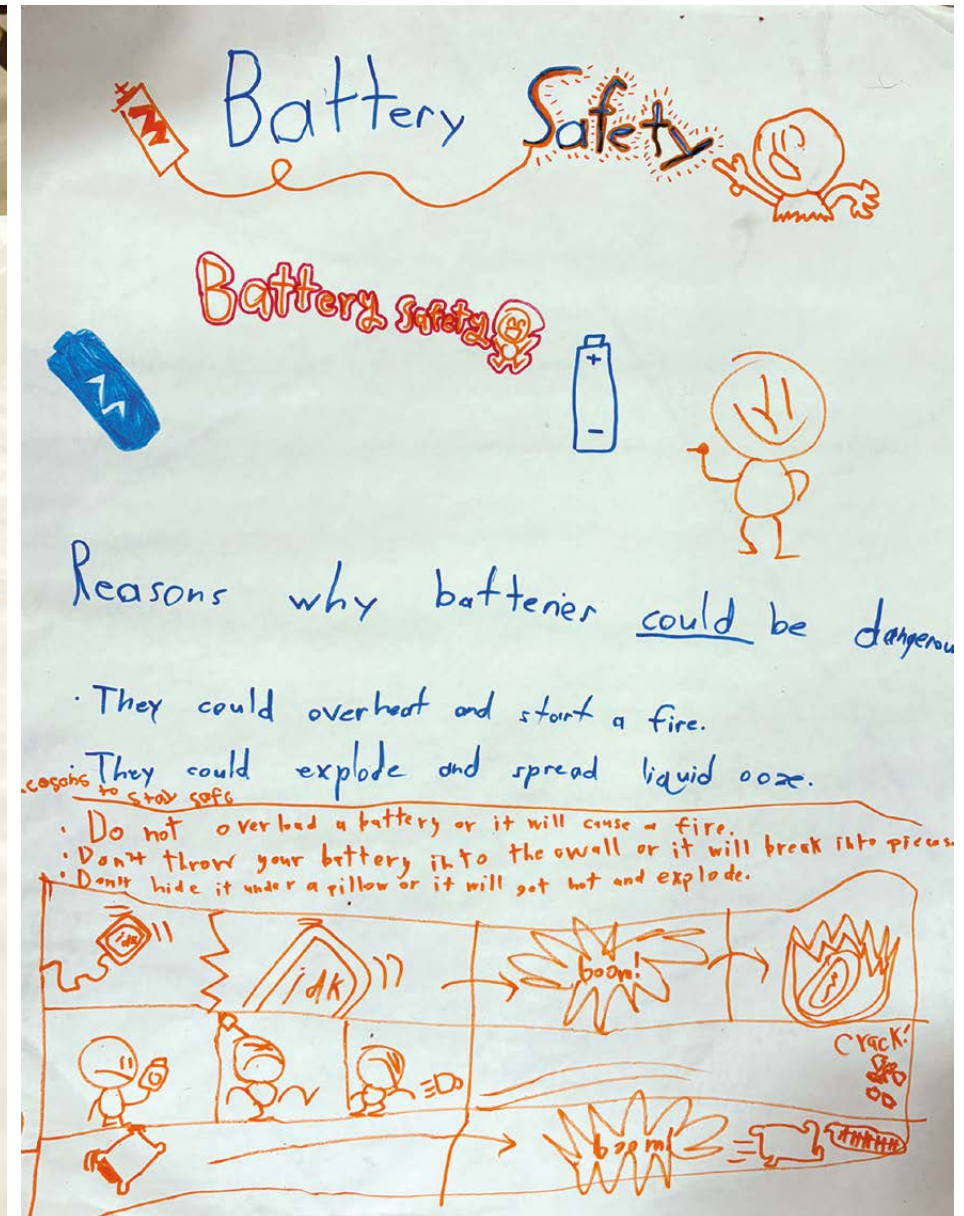 Battery Safety
Battery Safety
+
-
Reasons why batteries could be dangerou
· They could overheat and start a fire.
· They could explode and spread liquid ooze.
easons to stay safe
· Do not overload a battery or it will cause a fire.
· Don't throw your battery into the wall or it will break into pieces.
· Don't hide it under a pillow or it will get hot and explode.
idk idk boom!
Crack!
boom!